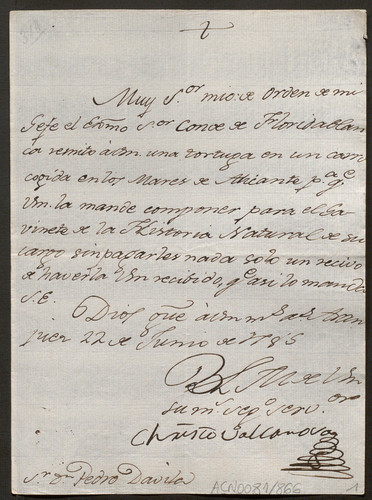 Muy S.or mio: de orden de mi
Gefe el Exmo S.or Conde de Floridablan
ca remito à Vm. una tortuga en un
cogida en los Mares de Alicante p.a q.e
Vm. la mande componer para el Ga
vinete de la Historia Natural de su
cargo sin pagarles nada solo un recivo
de haverla Vm recibido, q.e asi lo manda
S.E.
Dios gue à Vm m.s a.s Aran
juez 22 de Junio de 1786
BLM de Vm
su m.s seg.o serv.or
Christo
S.r D.n Pedro Davila
ACN0081/866
1